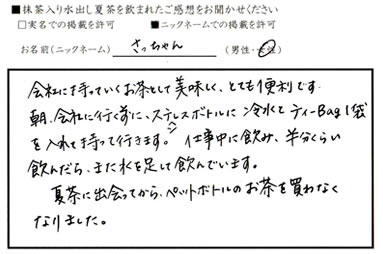 ■抹茶入り水出し夏茶を飲まれたご感想をお聞かせください
□実名での掲載を許可　■ニックネームでの掲載を許可
お名前(ニックネーム) さっちゃん (男性・女性)
会社に持っていくお茶として美味しく、とても便利です。
朝、会社に行く前に、ステンレスボトルに冷水とティーBag1袋
を入れて持って行きます。仕事中に飲み、半分くらい
飲んだら、また水を足して飲んでいます。
夏茶に出会ってから、ペットボトルのお茶を買わなく
なりました。